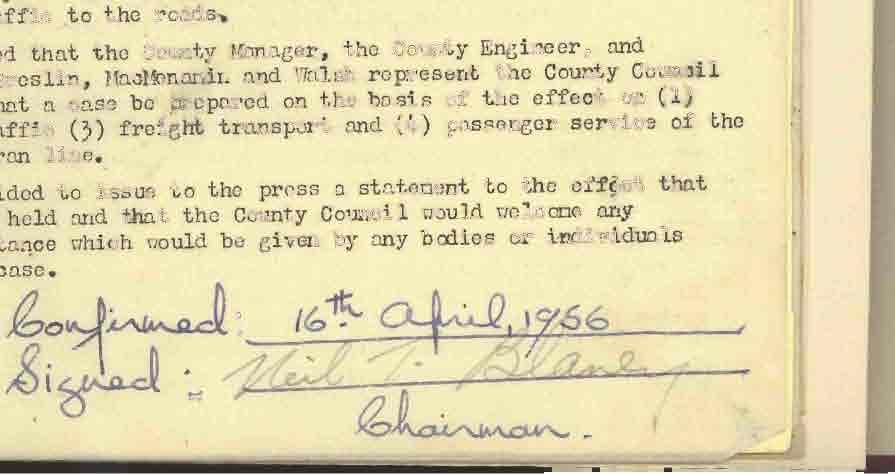 ffic to the roads.
ed that the County Manager, the County Engineer, and
reslin, MacMenamin and Walsh represent the County Council
hat a case be prepared on the basis of the effect on (1)
affic (3) freight transport and (4) passenger service of the
ran line.
ided to issue to the press a statement to the effect that
held and that the County Council would welcome any
tance which would be given by any bodies or individuals
case.
Confirmed: 16th. April, 1956
Signed: Neil T. Blaney
Chairman.